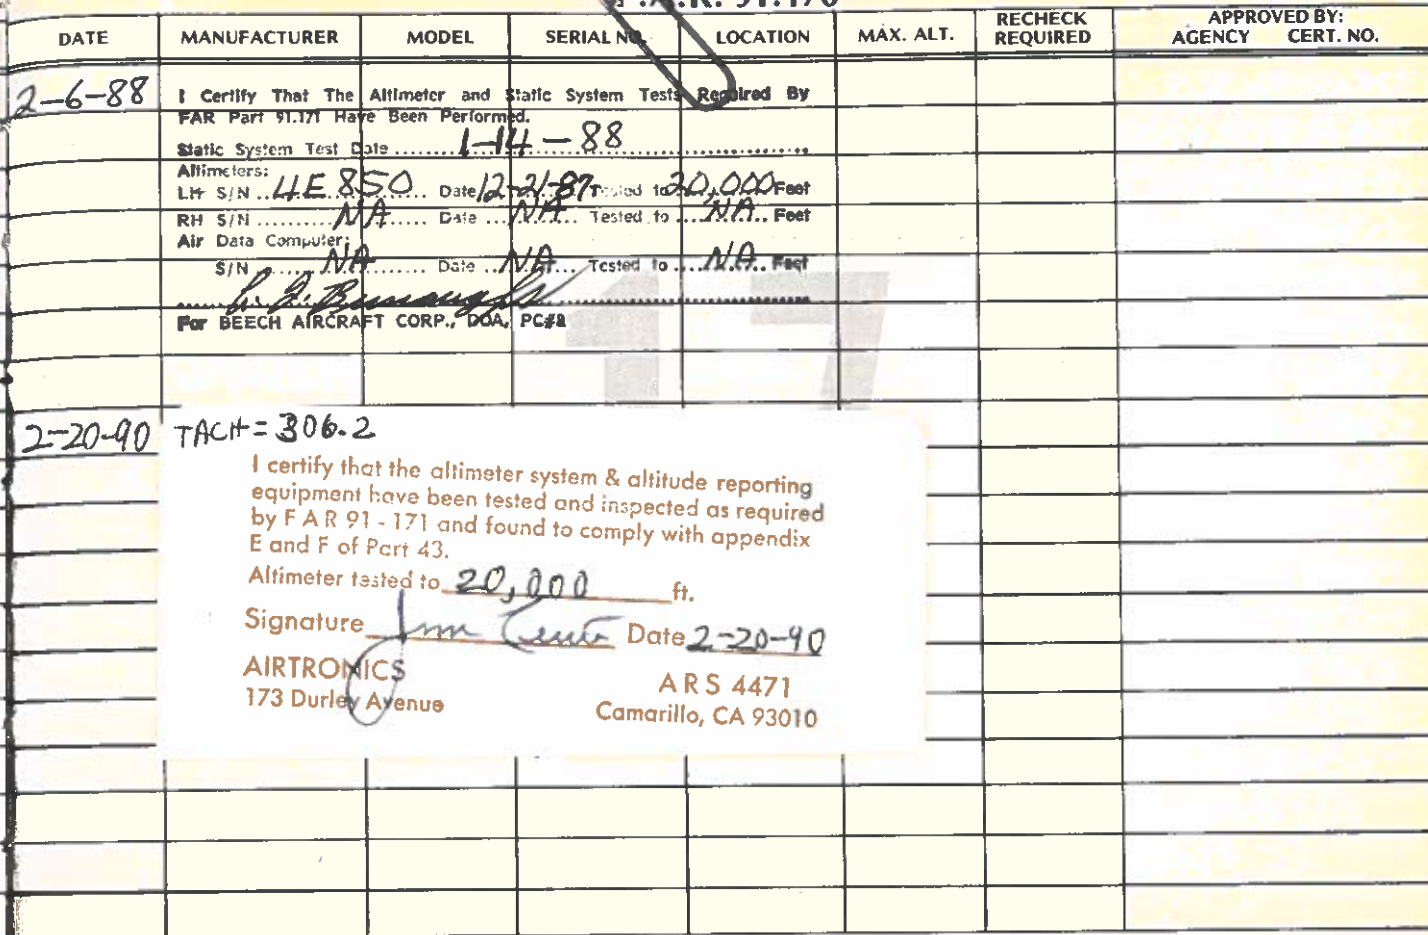 F.A.R. 91.170
DATE MANUFACTURER MODEL SERIAL NO. LOCATION MAX. ALT. RECHECK REQUIRED APPROVED BY: AGENCY CERT. NO.
2-6-88
I Certify That The Altimeter and Static System Tests Required By
FAR Part 91.171 Have Been Performed.
Static System Test Date 1-14-88
Altimeters:
LH S/N 4E850 Date 12-21-87 Tested to 20,000 Feet
RH S/N NA Date NA Tested to NA Feet
Air Data Computer:
S/N NA Date NA Tested to NA Feet
For BEECH AIRCRAFT CORP., DOA, PC#2
17
2-20-90 TACH = 306.2
I certify that the altimeter system & altitude reporting
equipment have been tested and inspected as required
by F A R 91 - 171 and found to comply with appendix
E and F of Part 43.
Altimeter tested to 20,000 ft.
Signature Date 2-20-90
AIRTRONICS ARS 4471
173 Durley Avenue Camarillo, CA 93010